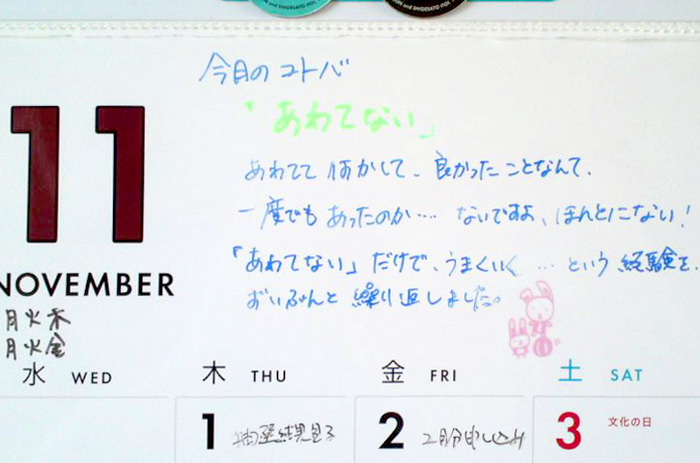 and SHIGESATO ITOI
今月のコトバ
「あわてない」
あわてて何かして、良かったことなんて、
一度でもあったのか…. ないですよ、ほんとにない!
「あわてない」だけで、うまくいく …という 経験を、
ずいぶんと 繰り返しました。
11
NOVEMBER
月火木
月火金
水 WED 木 THU 金 FRI 土 SAT
1 抽選結果見る 2 2月分申し込み 3 文化の日